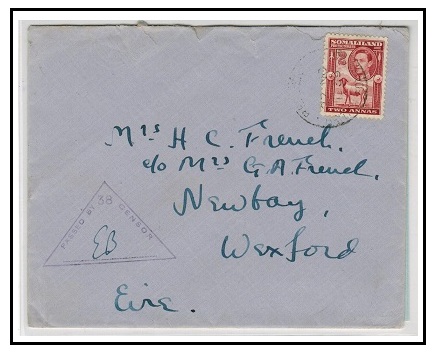 SOMALILAND
TWO ANNAS
Mrs H C. French.
c/o Mrs G.A. French,
Newbay,
Wexford
Eire.
PASSED BY 38 CENSOR
EB